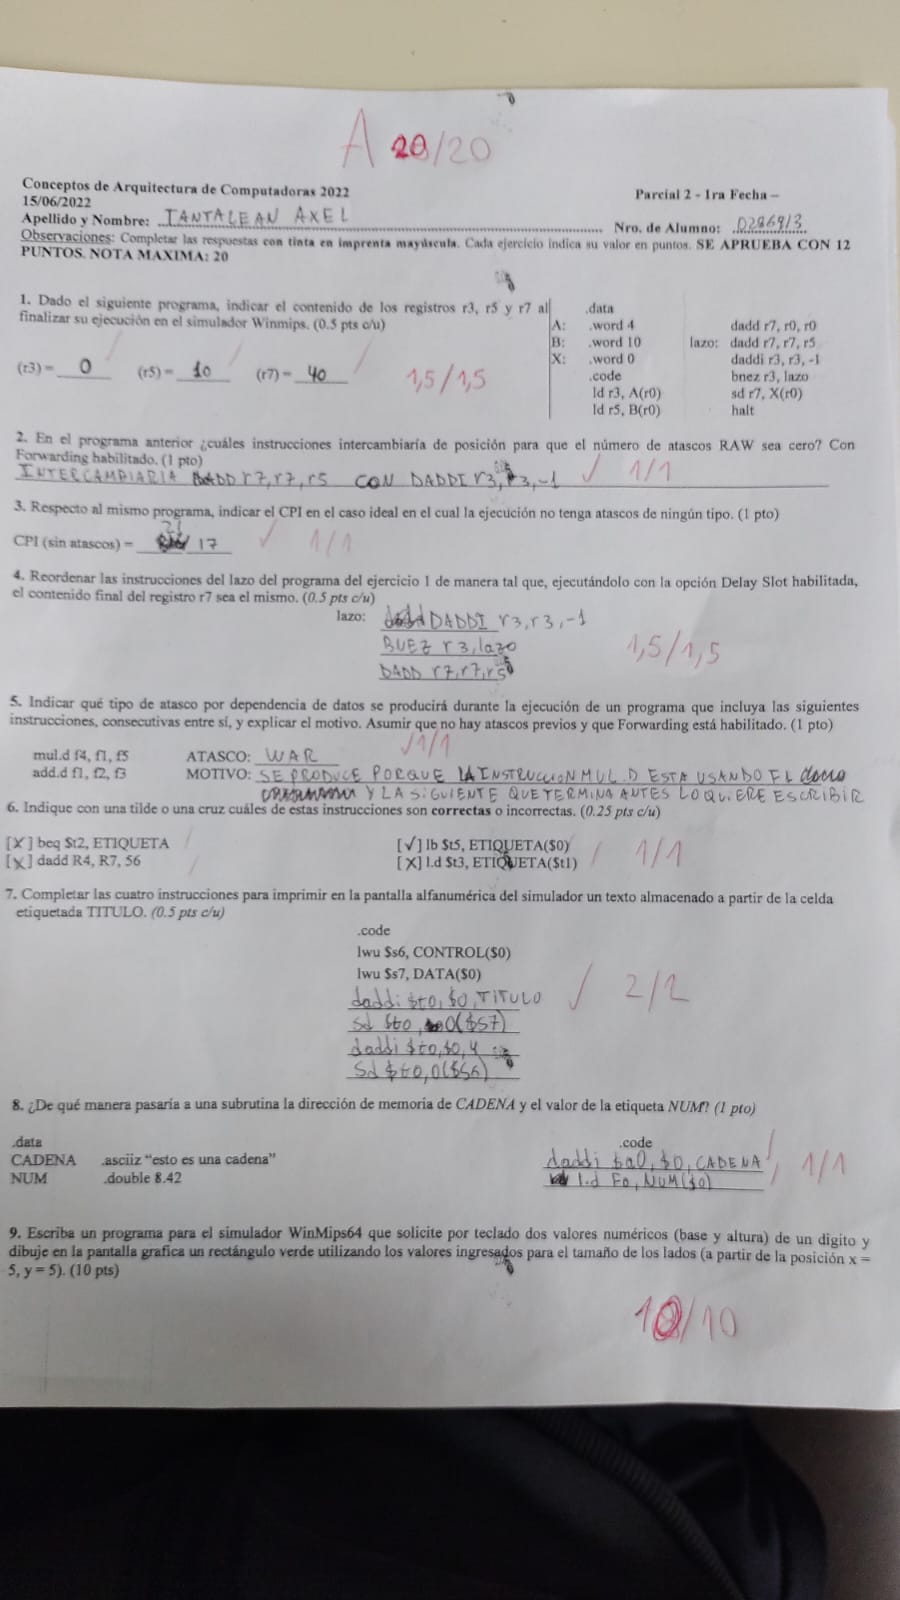 A 20/20
Conceptos de Arquitectura de Computadoras 2022
Parcial 2 - 1ra Fecha –
15/06/2022
Apellido y Nombre: TANTALEAN AXEL Nro. de Alumno: 02869/3
Observaciones: Completar las respuestas con tinta en imprenta mayúscula. Cada ejercicio indica su valor en puntos. SE APRUEBA CON 12
PUNTOS. NOTA MAXIMA: 20
1. Dado el siguiente programa, indicar el contenido de los registros r3, r5 y r7 al
finalizar su ejecución en el simulador Winmips. (0.5 pts c/u)
(r3) = 0 (r5) = 10 (r7) = 40 1,5/1,5
.data
A: .word 4
B: .word 10
X: .word 0
.code
ld r3, A(r0)
ld r5, B(r0)
dadd r7, r0, r0
lazo: dadd r7, r7, r5
daddi r3, r3, -1
bnez r3, lazo
sd r7, X(r0)
halt
2. En el programa anterior ¿cuáles instrucciones intercambiaría de posición para que el número de atascos RAW sea cero? Con
Forwarding habilitado. (1 pto)
INTERCAMBIARIA DADD r7, r7, r5 CON DADDI r3, r3, -1 ✓ 1/1
3. Respecto al mismo programa, indicar el CPI en el caso ideal en el cual la ejecución no tenga atascos de ningún tipo. (1 pto)
CPI (sin atascos) = 21 / 17 ✓ 1/1
4. Reordenar las instrucciones del lazo del programa del ejercicio 1 de manera tal que, ejecutándolo con la opción Delay Slot habilitada,
el contenido final del registro r7 sea el mismo. (0.5 pts c/u)
lazo: DADDI r3, r3, -1
BUEZ r3, lazo
DADD r7, r7, r5
1,5/1,5
5. Indicar qué tipo de atasco por dependencia de datos se producirá durante la ejecución de un programa que incluya las siguientes
instrucciones, consecutivas entre sí, y explicar el motivo. Asumir que no hay atascos previos y que Forwarding está habilitado. (1 pto)
mul.d f4, f1, f5 ATASCO: WAR ✓ 1/1
add.d f1, f2, f3 MOTIVO: SE PRODUCE PORQUE LA INSTRUCCION MUL.D ESTA USANDO EL
Y LA SIGUIENTE QUE TERMINA ANTES LO QUIERE ESCRIBIR
6. Indique con una tilde o una cruz cuáles de estas instrucciones son correctas o incorrectas. (0.25 pts c/u)
[X] beq $t2, ETIQUETA [✓] lb $t5, ETIQUETA($0)
[X] dadd R4, R7, 56 [X] l.d $t3, ETIQUETA($t1)
1/1
7. Completar las cuatro instrucciones para imprimir en la pantalla alfanumérica del simulador un texto almacenado a partir de la celda
etiquetada TITULO. (0.5 pts c/u)
.code
lwu $s6, CONTROL($0)
lwu $s7, DATA($0)
daddi $t0, $0, TITULO
sd $t0, 0($s7)
daddi $t0, $0, 4
sd $t0, 0($s6)
✓ 2/2
8. ¿De qué manera pasaría a una subrutina la dirección de memoria de CADENA y el valor de la etiqueta NUM? (1 pto)
.data
CADENA .asciiz “esto es una cadena”
NUM .double 8.42
.code
daddi $a0, $0, CADENA
l.d F0, NUM($0)
1/1
9. Escriba un programa para el simulador WinMips64 que solicite por teclado dos valores numéricos (base y altura) de un dígito y
dibuje en la pantalla grafica un rectángulo verde utilizando los valores ingresados para el tamaño de los lados (a partir de la posición x =
5, y = 5). (10 pts)
10/10